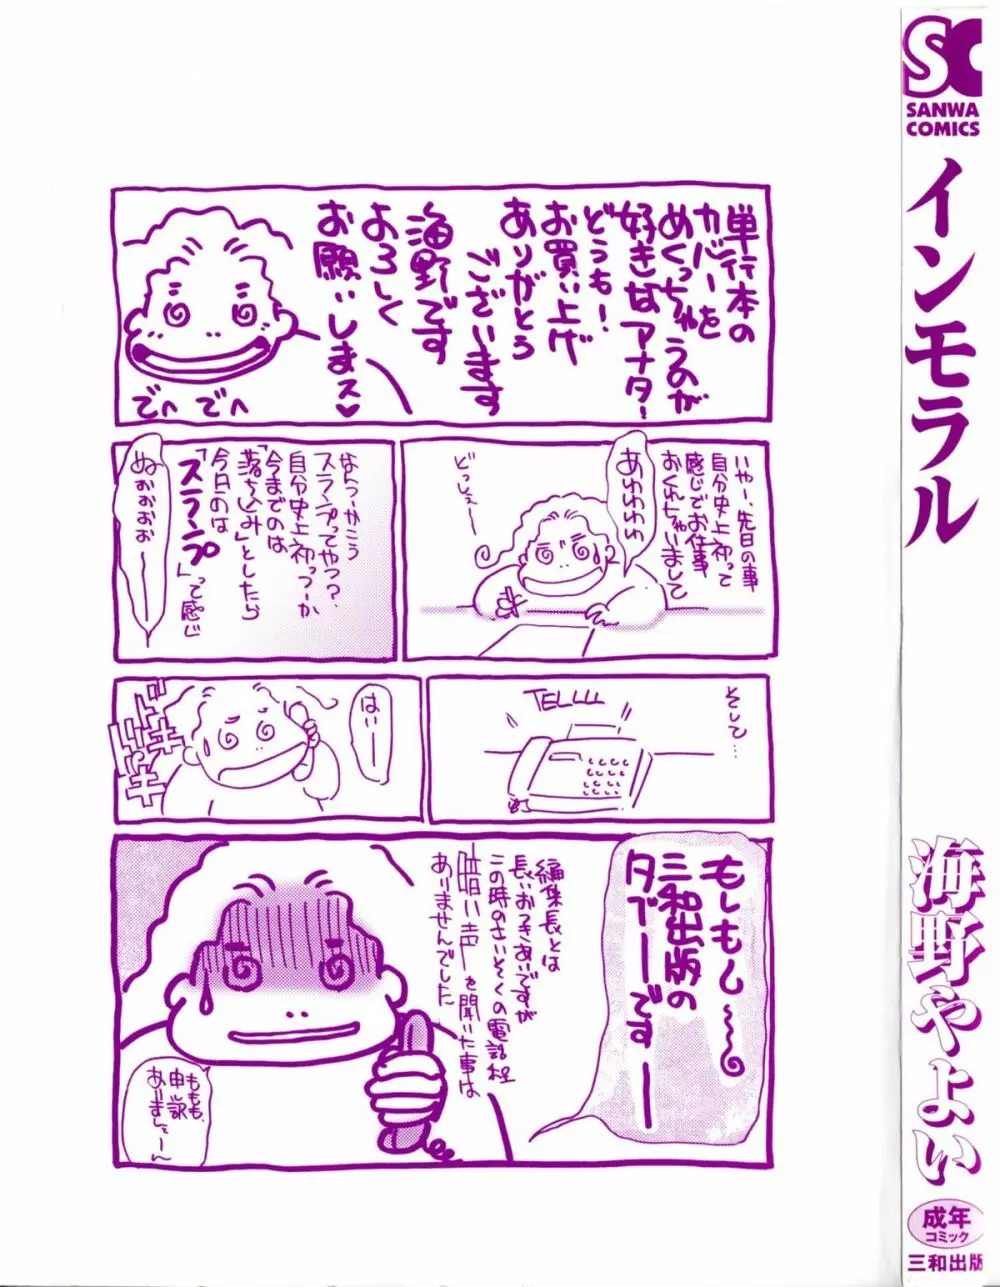 単行本の
カバーを
めくっちゃうのが
好きなアナター
どうも!
お買い上げ
ありがとう
ございます
海野です
よろしく
お願いしまス♡
でへ でへ
いやー、先日の事
自分史上初って
感じでお仕事
おくれちゃいまして
あわわわわ
どっしぇ〜
なんつーかこう
スランプってやつ?
自分史上初っつーか
今までのは
「落ち込み」としたら
今日のは
「スランプ」って感じ
ぬぉぉぉぉ――
そして…
TELLLL
はいー
ドッキ
ドッキ
もしもし〜〜
三和出版の
タベーーです――
編集長とは
長いおつきあいですが
この時のさいそくの電話程
暗い声を聞いた事は
ありませんでした
ももも、
申し訳
ありましぇーん
SC
SANWA
COMICS
インモラル
海野やよい
成年
コミック
三和出版